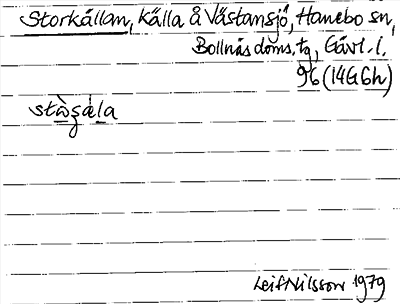 Storkällan, källa å Västansjö, Hanebo sn,
Bollnäs doms.tg, Gävl. l.
96 (14G Gh)
Leif Nilsson 1979